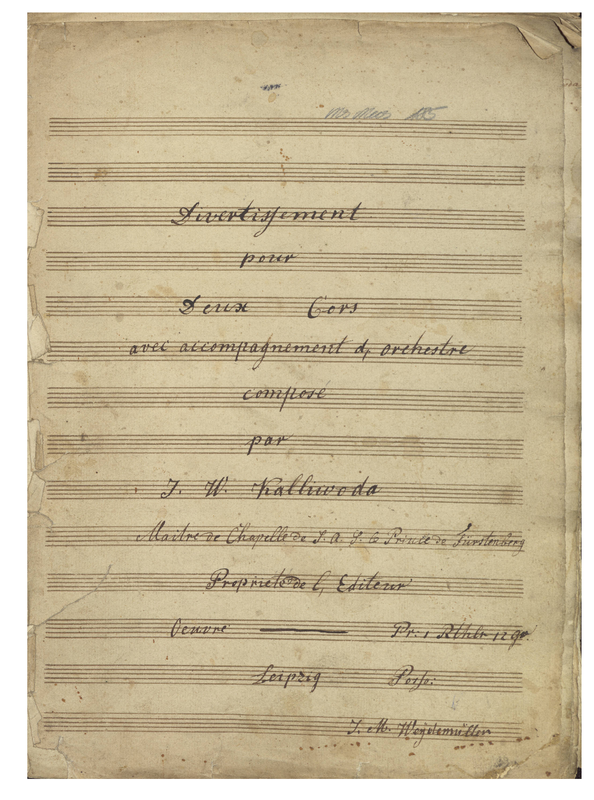 Divertissement
pour
Deux Cors
avec accompagnement d, orchestre
composé
par
J. W. Kalliwoda
Maitre de Chapelle de S. A. S. le Prince de Fürstenberg
Proprieté de l, Editeur
Oeuvre ——— Pr: 1 Rthlr 12 gr.
Leipzig
J. M. Weydemüller